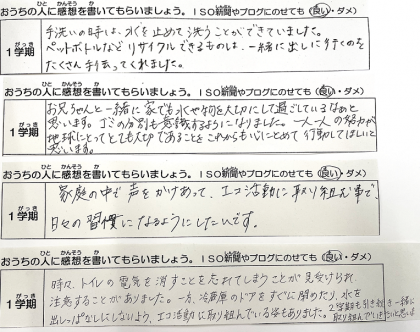 おうちの人に感想を書いてもらいましょう。ISO新聞やブログにのせても（良い・ダメ）
1学期
手洗いの時は、水を止めて洗うことができていました。
ペットボトルなどリサイクルできるものは、一緒に出しに行くのを
たくさん手伝ってくれました。
おうちの人に感想を書いてもらいましょう。ISO新聞やブログにのせても（良い・ダメ）
1学期
お兄ちゃんと一緒に家でも水や物を大切にして過ごしているなぁと
思います。ゴミの分別も意識するようになりました。一人一人の努力が
地球にとってとても大切であることをこれからも心にとめて行動してほしいと
思います。
おうちの人に感想を書いてもらいましょう。ISO新聞やブログにのせても（良い・ダメ）
1学期
家庭の中で声をかけあって、エコ活動に取り組む事で、
日々の習慣になるようにしたいです。
おうちの人に感想を書いてもらいましょう。ISO新聞やブログにのせても（良い・ダメ）
1学期
時々、トイレの電気を消すことを忘れてしまうことが見受けられ、
注意することがありました。一方、冷蔵庫のドアをすぐに閉めたり、水を
出しっぱなしにしないよう、エコ活動に取り組んでいる姿もありました。
2学期も引き続き一緒に
取り組んでいきたいと思い